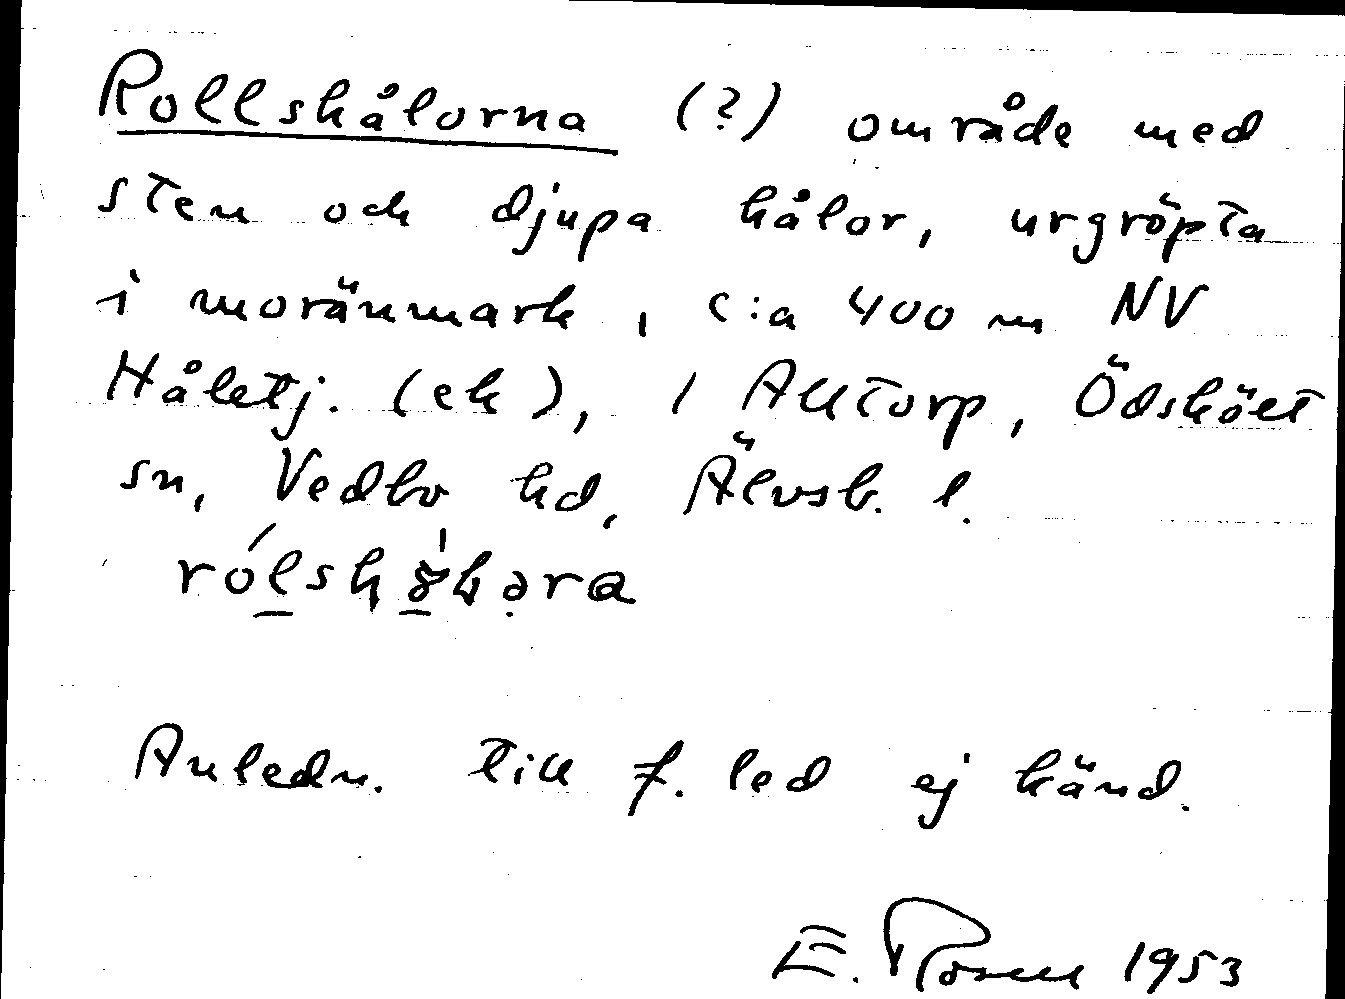 Rollskålorna (?) område med
sten och djupa hålor, urgröpta
i moränmark, c:a 400 m NV
Håletj. (ek), i Alltorp, Ödskölt
sn, Vedbo hd, Älvsb. l.
Anledn. till f. led ej känd.
E. Rosell 1953